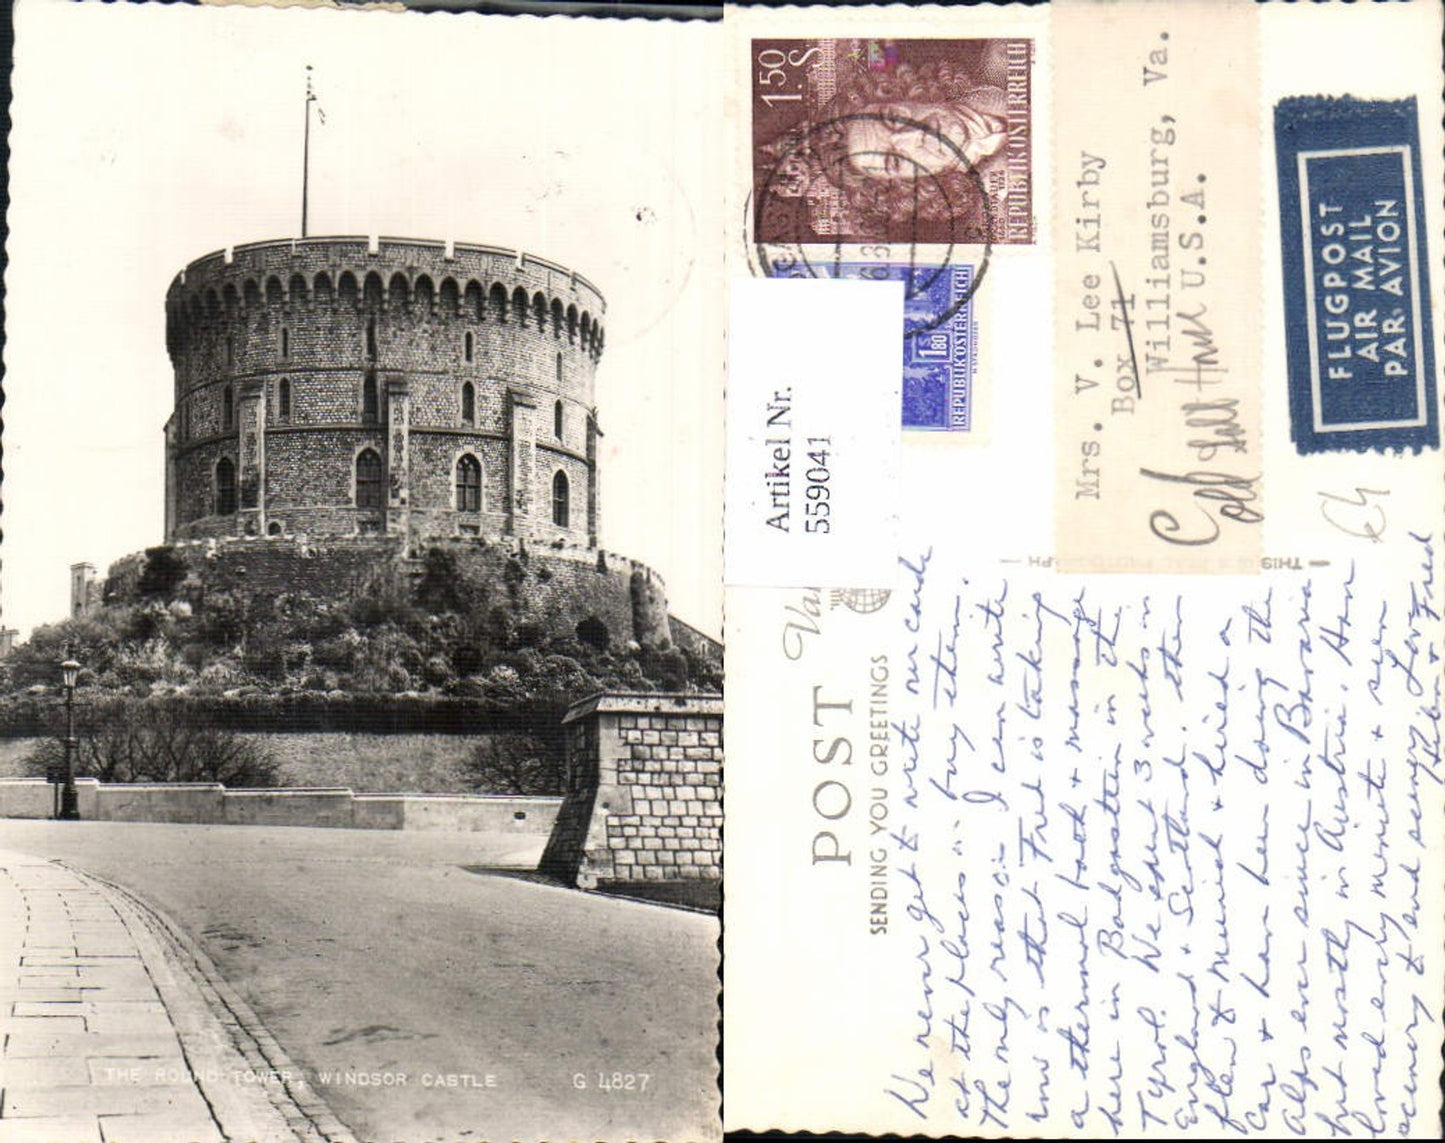 THE ROUND TOWER, WINDSOR CASTLE G 4827
1.50 S
REPUBLIK ÖSTERREICH
1.80 S
REPUBLIK ÖSTERREICH
Artikel Nr.
559041
Mrs. V. Lee Kirby
Box 71
Williamsburg, Va.
U.S.A.
FLUGPOST
AIR MAIL
PAR AVION
POST
SENDING YOU GREETINGS
We never get to write our cards
at the places we buy them.
The only reason I can write
now is that Fred is taking
a thermal bath & massage
here in Badgastein in the
Tyrol. We spent 3 weeks in
England & Scotland. then
flew to Munich & hired a
car & have been doing the
Alps ever since in Bavaria
but mostly in Austria. Have
loved every minute & seen
scenery to end scenery Love
& Fred